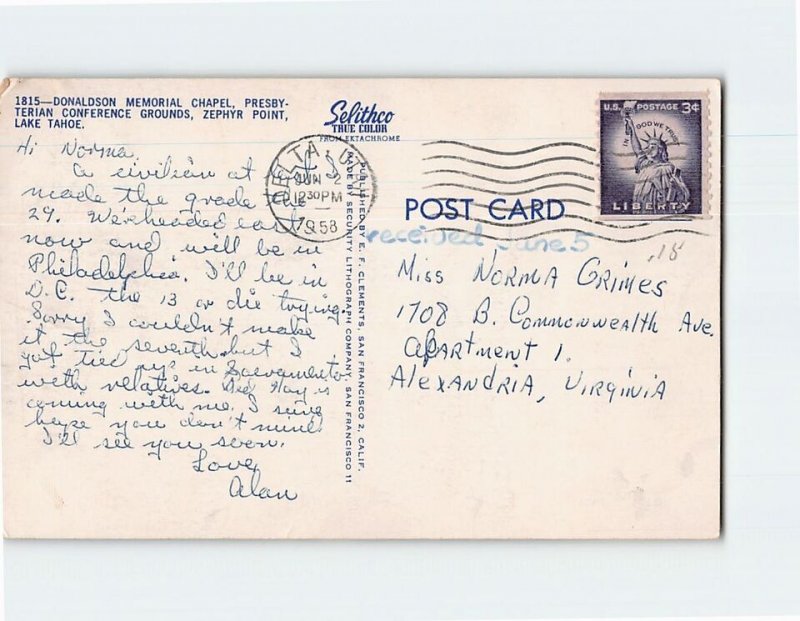 1815—DONALDSON MEMORIAL CHAPEL, PRESBY-
TERIAN CONFERENCE GROUNDS, ZEPHYR POINT,
LAKE TAHOE.
Selithco
TRUE COLOR
FROM EKTACHROME
Hi Norma,
a civilian at last. I
made the grade the
29. We headed east
now and will be in
Philadelphia. I'll be in
D.C. the 13 or die trying.
Sorry I couldn't make
it the seventh but I
got tied up in Sacramento
with relatives. is
coming with me. I sure
hope you don't mind.
I'll see you soon.
Love,
Alan
PUBLISHED BY E. F. CLEMENTS, SAN FRANCISCO 2, CALIF.
MADE BY SECURITY LITHOGRAPH COMPANY, SAN FRANCISCO 11
DELTA, UTAH
JUN 2
1230 PM
1958
U.S. POSTAGE 3¢
IN GOD WE TRUST
LIBERTY
POST CARD
received June 5
.15
Miss Norma Grimes
1708 B. Commonwealth Ave.
Apartment 1.
Alexandria, Virginia